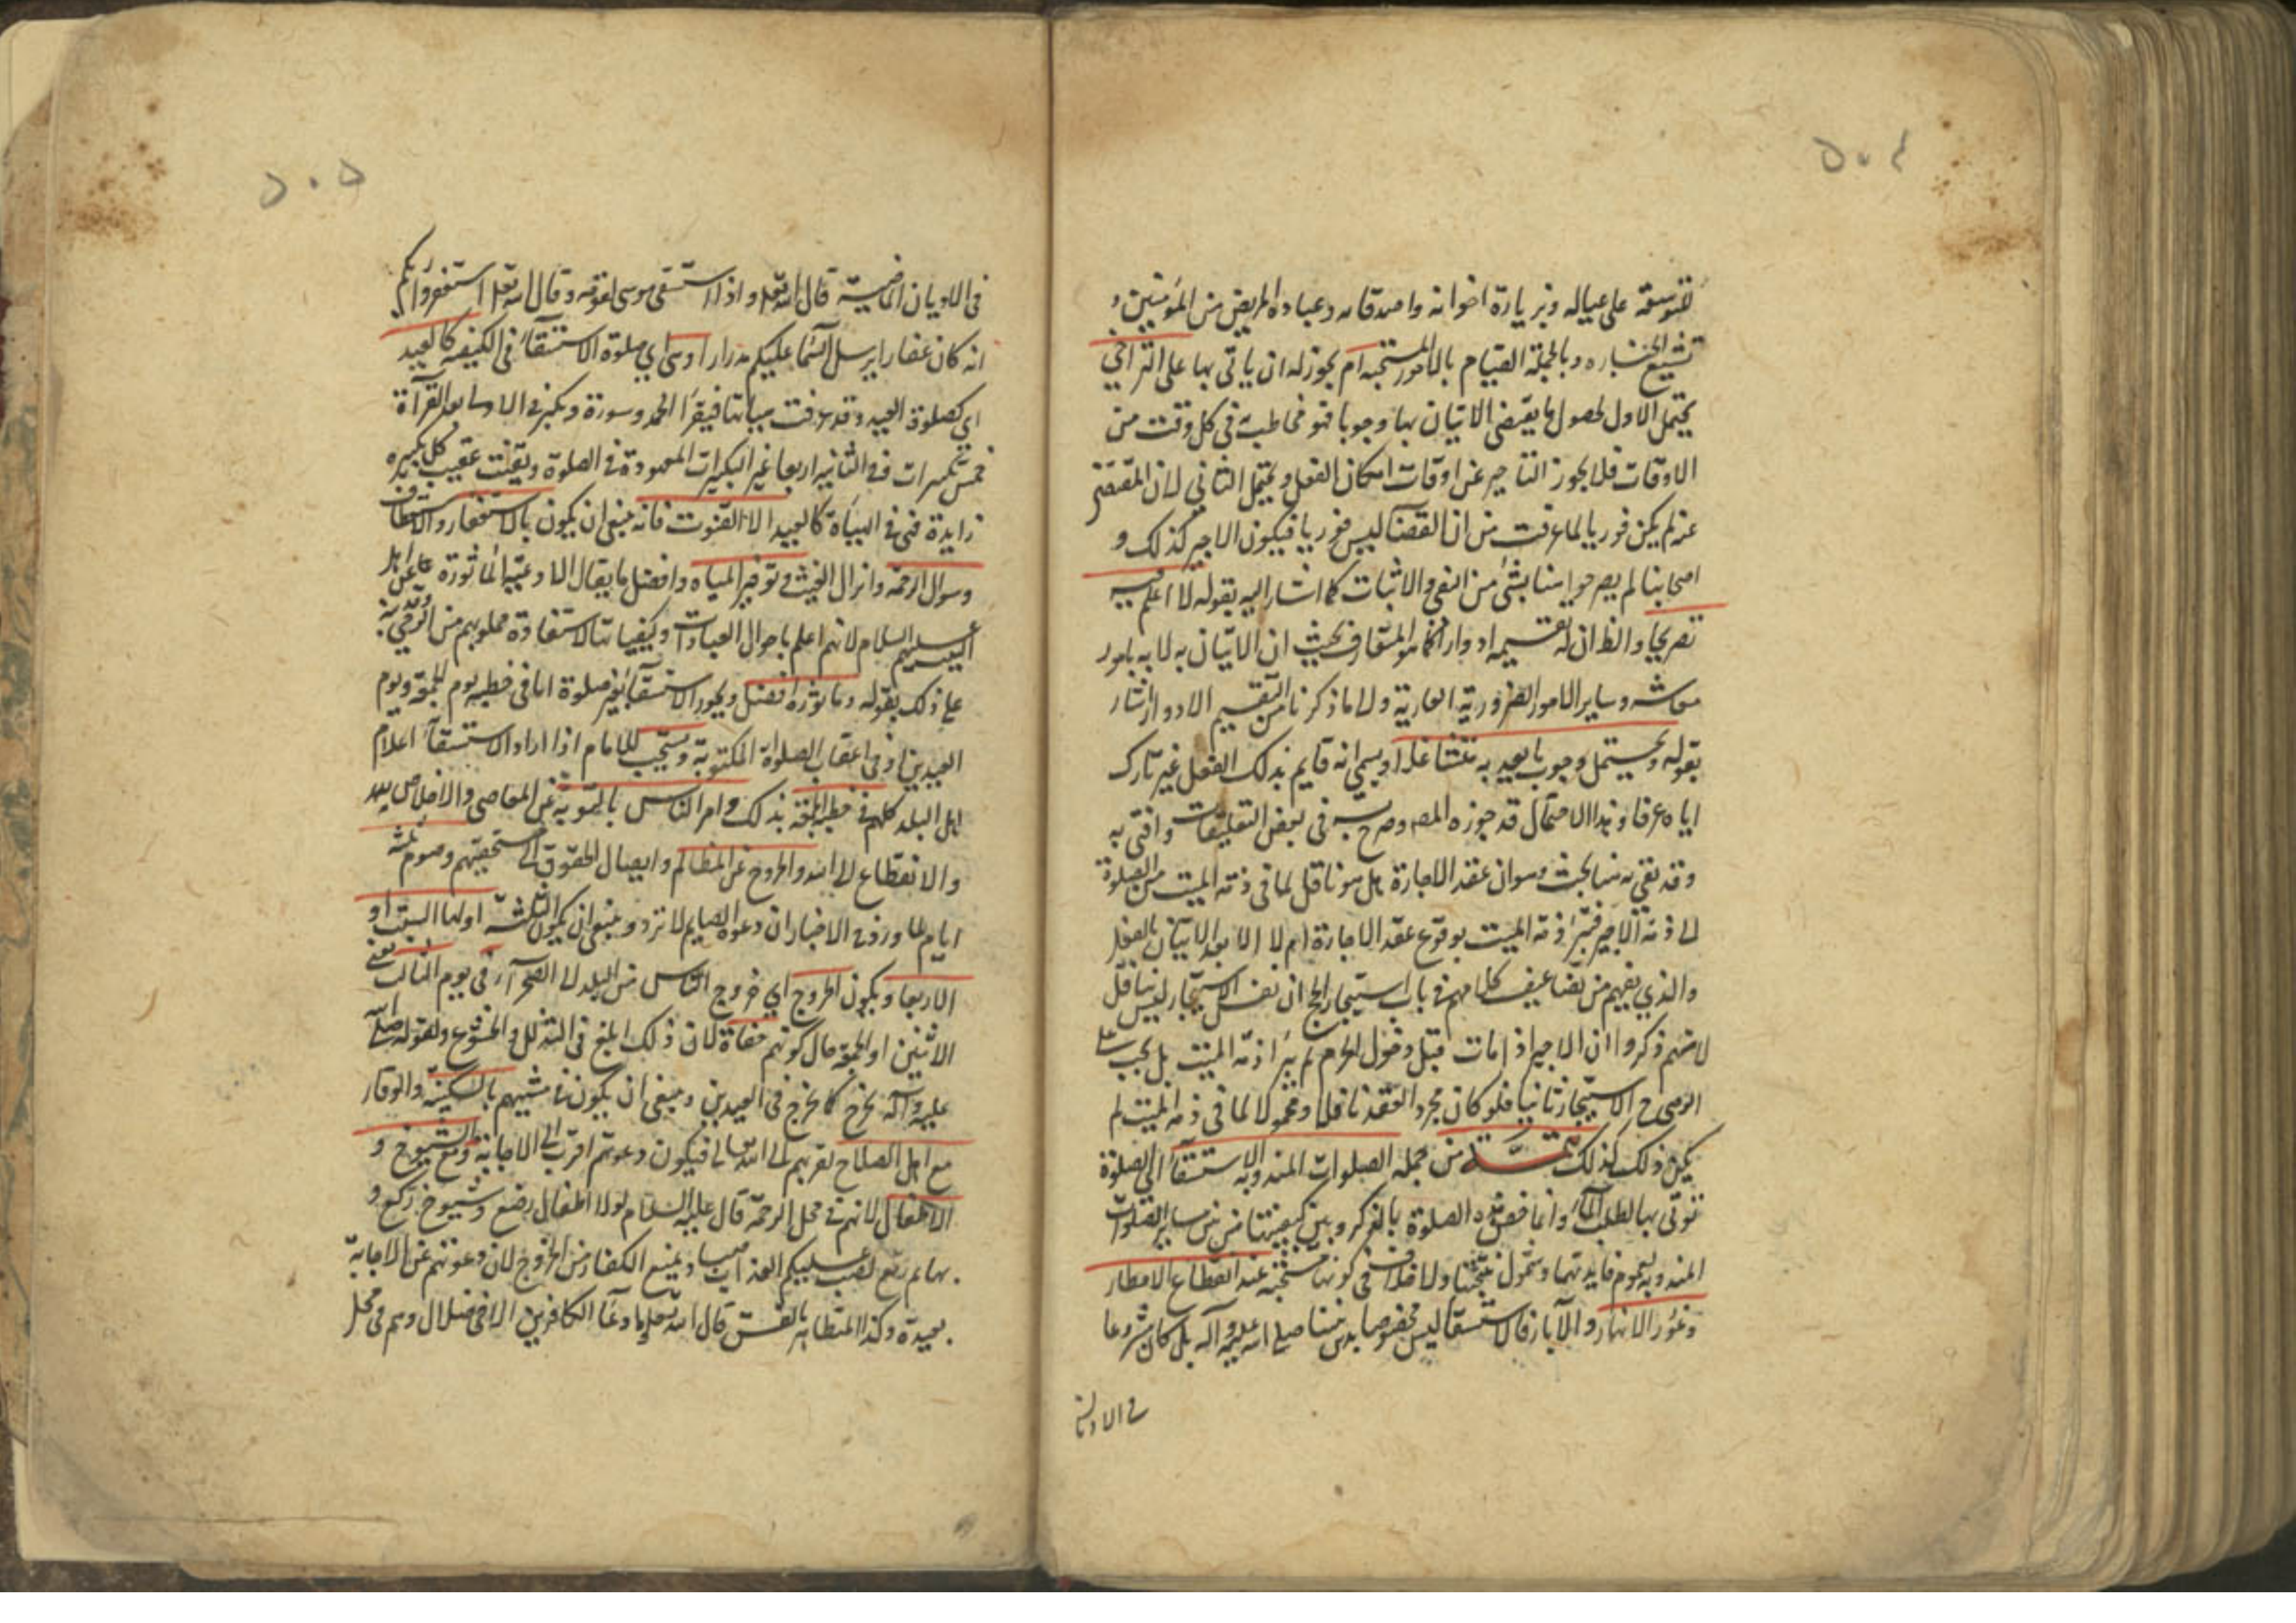 ٥٠٤
للتوسعة على عياله وبزيارة اخوانه واصدقائه وعيادة المريض من المؤمنين و
تشييع الجنازه وبالجملة القيام بالامور المستحبه ام يجوز له ان ياتى بها على التراخي
يحتمل الاول لحصول ما يقتضى الاتيان بها وجوبا فهو مخاطب به في كل وقت من
الاوقات فلا يجوز التاخير عن اوقات امكان الفعل ويحتمل الثاني لان المقتضى
عنه لم يكن فوريا لما عرفت من ان القضا ليس فوريا فيكون الاجير كذلك و
اصحابنا لم يصرحوا هنا بشئ من النفى والاثبات كما اشار اليه بقوله لا اعلم فيه
تصريحا والظ ان له تقسيمه ادوارا كما هو المتعارف بحيث ان الاتيان به لا به بامور
معاشه وساير الامور الضرورية العارية ولما ذكرنا من التقسيم الادوار اشار
بقوله ويحتمل وجوب ما يعد به متشاغلا او يسمى انه قايم بذلك الفعل غير تارك
اياه عرفا وهذا الاحتمال قد جوزه المصـ وصرح به في بعض التعليقات وافتى به
وقد بقى هنا بحث وهو ان عقد الاجارة هل هو ناقل لما في ذمة الميت من الصلوة
الى ذمة الاجير فتبرأ ذمة الميت بوقوع عقد الاجارة ام لا الا بعد الاتيان بالفعل
والذي يفهم من تضاعيف كلامهم في باب استيجار الحج ان نفس الاستيجار ليس بناقل
لانهم ذكروا ان الاجير اذا مات قبل دخول الحرم لم يبرأ ذمة الميت بل يجب على
الوصى ح الاستيجار ثانيا فلو كان مجرد العقد ناقلا ومحولا لما في ذمة الميت لم
يكن ذلك كذلك تتمة من جملة الصلوات المندوبة الاستسقاء اي الصلوة
تؤتى بها لطلب الماء وانما خص هذه الصلوة بالذكر وبين كيفيتها من بين ساير الصلوات
المندوبه لعموم فايدتها وشمول نتيجتها ولا خلاف في كونها مستحبة عند انقطاع الامطار
وغور الانهار والآبار فالاستسقا ليس مخصوصا بدين نبينا صلى الله عليه وآله بل كان مشروعا
في الاديان
٥٠٥
في الاديان الماضية قال الله تعلى واذا استسقى موسى لقومه وقال الله تعلى استغفروا ربكم
انه كان غفارا يرسل السماء عليكم مدرارا وهى اي صلوة الاستسقاء في الكيفية كالعيد
اي كصلوة العيد وقد عرفت بيانها فيقرأ الحمد وسورة ويكبر في الاولى بعد القرآة
خمس تكبيرات وفي الثانية اربعا غير التكبيرات المعهودة في الصلوة ويقنت عقيب كل تكبيره
زايدة فهى في الهيأة كالعيد الا القنوت فانه ينبغى ان يكون بالاستغفار والاستعطاف
وسوال الرحمة وانزال الغيث وتوفير المياه وافضل ما يقال الادعية المأثورة عن اهل
البيت عليهم السلام لانهم اعلم باحوال العبادات وكيفياتها لاستفادة علومهم من الوحي وقد نبه
على ذلك بقوله ومأثوره افضل ويجوز الاستسقاء بغير صلوة اما في خطبة يوم الجمعة ويوم
العيدين او في اعقاب الصلوة المكتوبة ويستحب للامام اذا اراد الاستسقاء اعلام
اهل البلد كلهم في خطبة الجمعة بذلك وامر الناس بالتوبة عن المعاصى والاخلاص لله
والانقطاع الى الله والخروج عن المظالم وايصال الحقوق الى مستحقيهم وصوم ثلثة
ايام لما ورد في الاخبار ان دعوة الصايم لا ترد وينبغى ان يكون الثلثة اولها السبت او
الاربعا ويكون الخروج اي خروج الناس من البلد الى الصحراء في يوم الثالث يعنى
الاثنين او الجمعة حال كونهم حفاة لان ذلك ابلغ في التذلل والخشوع ولقوله صلى الله
عليه وآله يخرج كما يخرج في العيدين وينبغى ان يكون مشيهم بالسكينة والوقار
مع اهل الصلاح لقربهم الى الله تعالى فيكون دعوتهم اقرب الى الاجابة ومع الشيوخ و
الاطفال لانهم في محل الرحمة قال عليه السلام لولا اطفال رضع وشيوخ ركع و
بهايم رتع لصب عليكم العذاب صبا ويمنع الكفار من الخروج لان دعوتهم عن الاجابة
بعيدة وكذا المتظاهر بالفسق قال الله تعلى وما دعاء الكافرين الا في ضلال وهم في محل